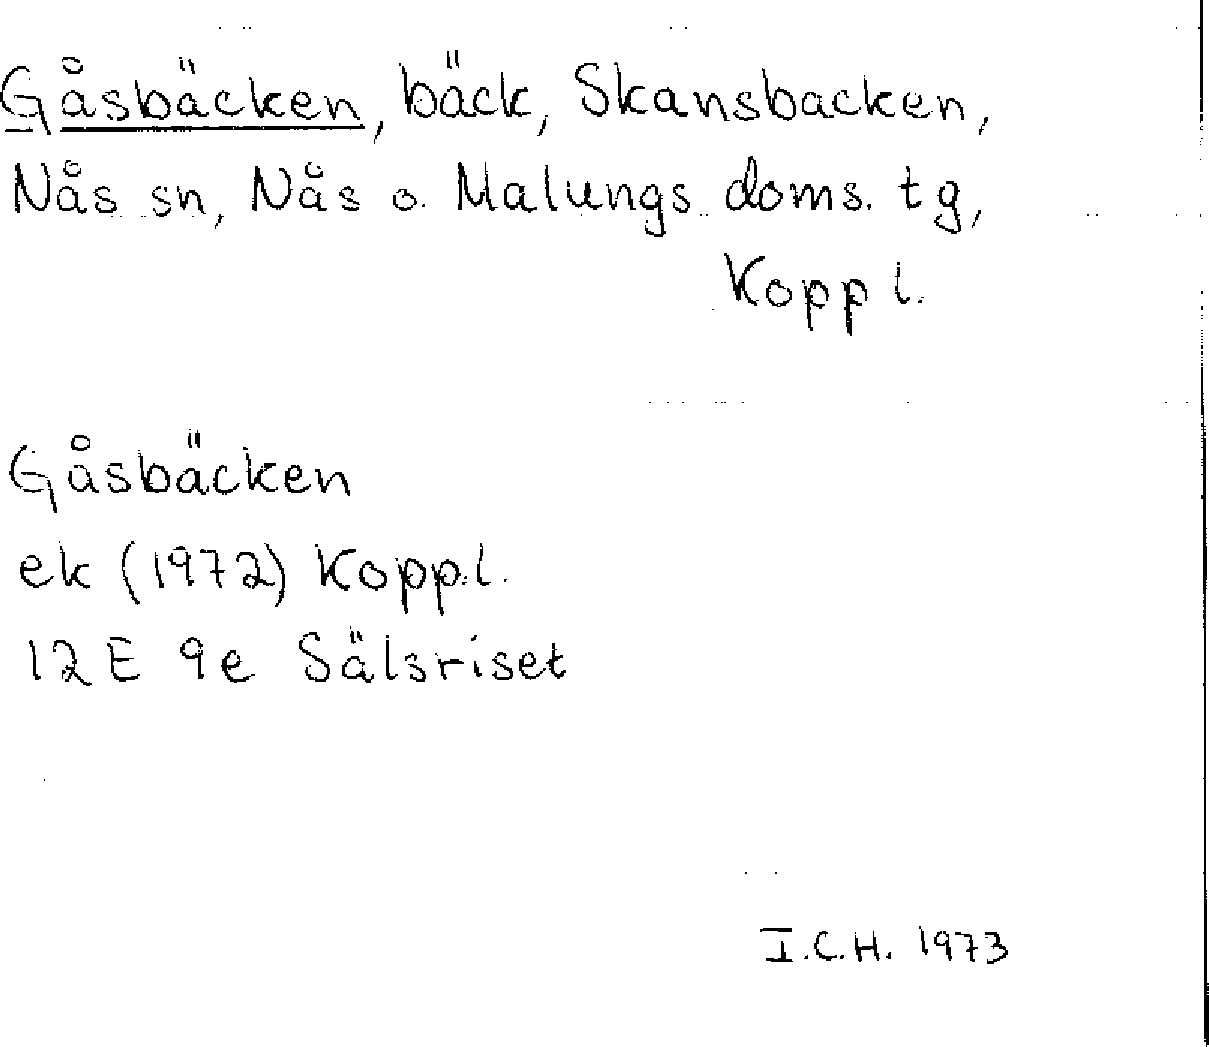 Gåsbäcken, bäck, Skansbacken,
Nås sn, Nås o. Malungs doms. tg,
Kopp l.
Gåsbäcken
ek (1972) Kopp.l.
12E 9e Sälsriset
I.C.H. 1973